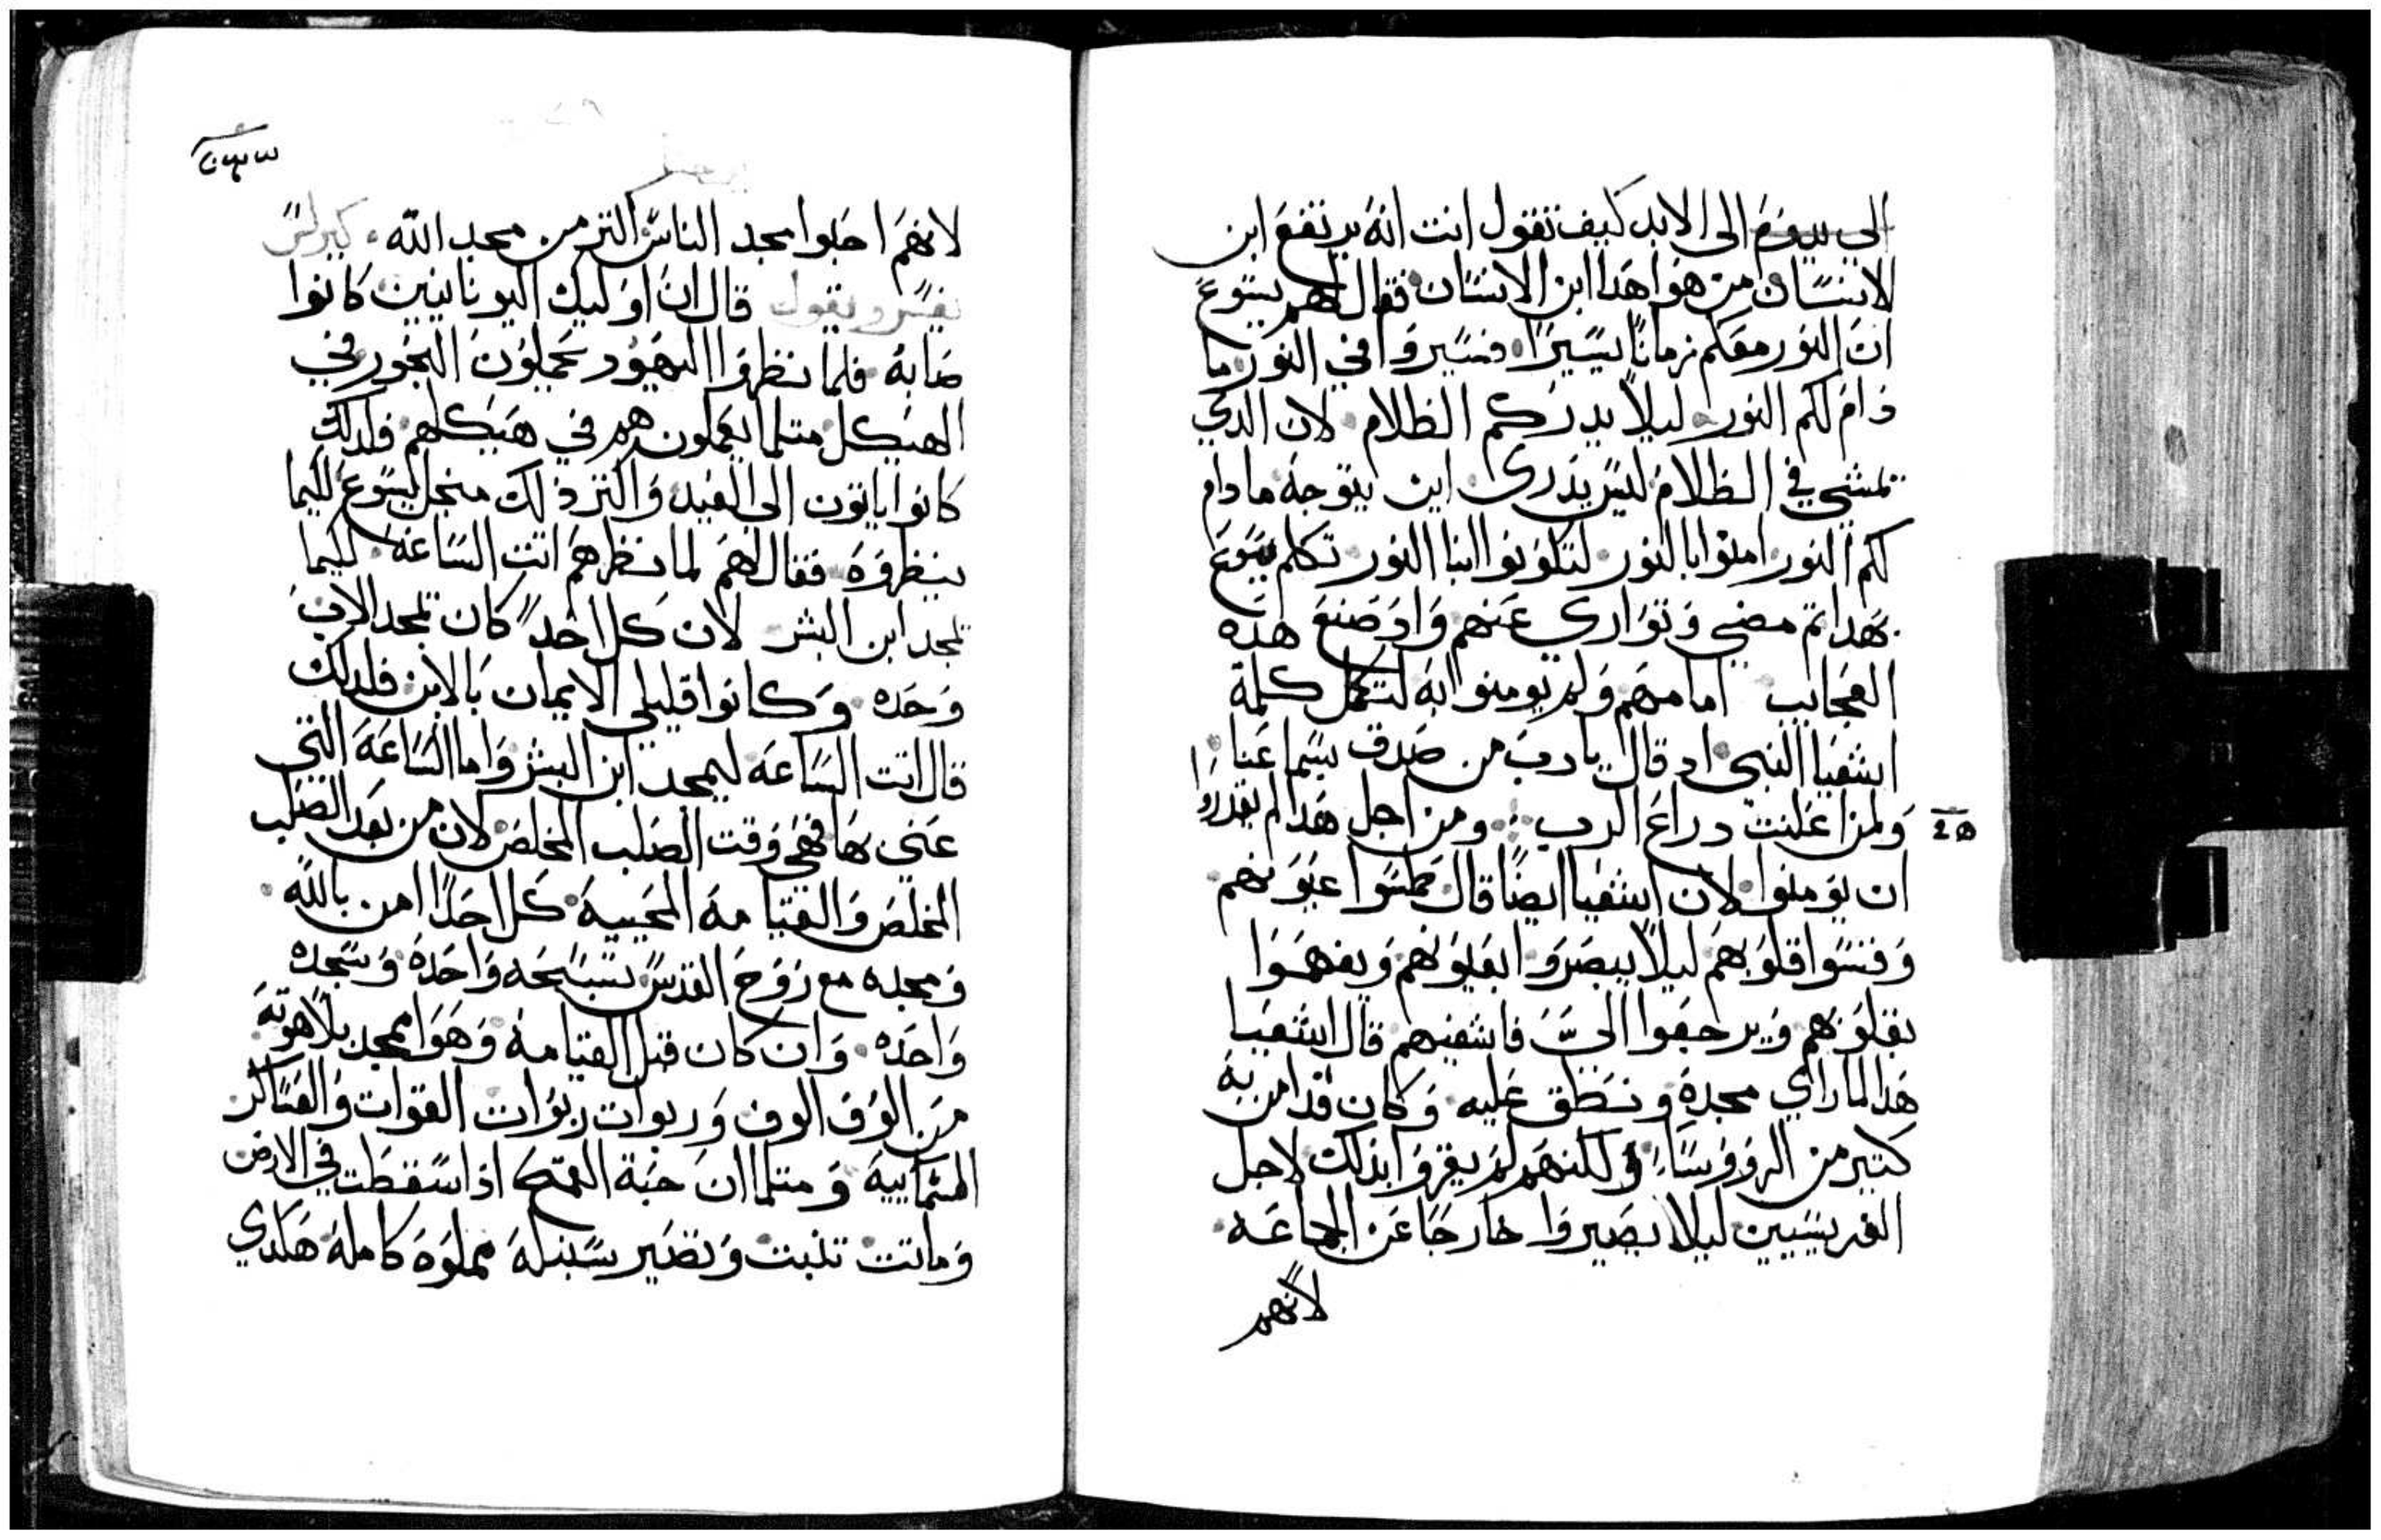 الي يدوم الى الابد كيف تقول انت انه يرتفع ابن
الانسان من هوا هدا ابن الانسان فقال لهم يسوع
ان النور معكم زمانا يسيرا فسيروا في النور ما
دام لكم النور ليلا يدرككم الظلام لان الدي
يمشي في الظلام ليس يدرى اين يتوجه ما دام
لكم النور امنوا بالنور لتكونوا ابنا النور تكلم يسوع
بهدا تم مضى وتوارى عنهم واد صنع هده
العجايب امامهم ولم يومنوا به لتكمل كلمة
اشعيا النبي اد قال يا رب من صدق بسماعنا
ولمن اعلنت دراع الرب ومن اجل هدا لم يقدروا
ان يومنوا لان اشعيا ايضا قال طمسوا عيونهم
وقسوا قلوبهم ليلا يبصروا بعيونهم ويفهموا
بقلوبهم ويرجعوا الىّ فاشفيهم قال اشعيا
هدا لما راي مجده ونطق عليه وكان قد امن به
كتير من الرووسا ولكنهم لم يقروا بذلك لاجل
الفريسيين ليلا يصيروا خارجا عن الجماعه
لانهم
لانهم احبوا مجد الناس اكتر من مجد الله كيرلس
يفسر ويقول قال ان اوليك اليونانيين كانوا
صابه فلما نظروا اليهود يعملون البخور في
الهيكل متلما يعملون هم في هيكلهم فلدلك
كانوا ياتون الي العيد واكتر ذلك من اجل يسوع لكيما
ينظروه فقال لهم لما نظرهم اتت الساعه لكيما
يمجد ابن البشر لان كل احد كان يمجد الاب
وحده وكانوا قليلي الايمان بالابن فلدلك
قال اتت الساعه ليمجد ابن البشر واما الساعه التي
عنى بها فهي وقت الصلب المخلص لان من بعد الصلب
المخلص والقيامه المحييه كل احدا امن بالله
ومجده مع روح القدس تسبحه واحده وسجده
واحده وان كان قبل القيامه وهوا ممجد بلاهوته
من الوف الوف وربوات ربوات القوات والعساكر
السماييه ومتلما ان حبة القمح اذا سقطت في الارض
وماتت تنبت وتصير سنبله مملوه كاملة هكدي